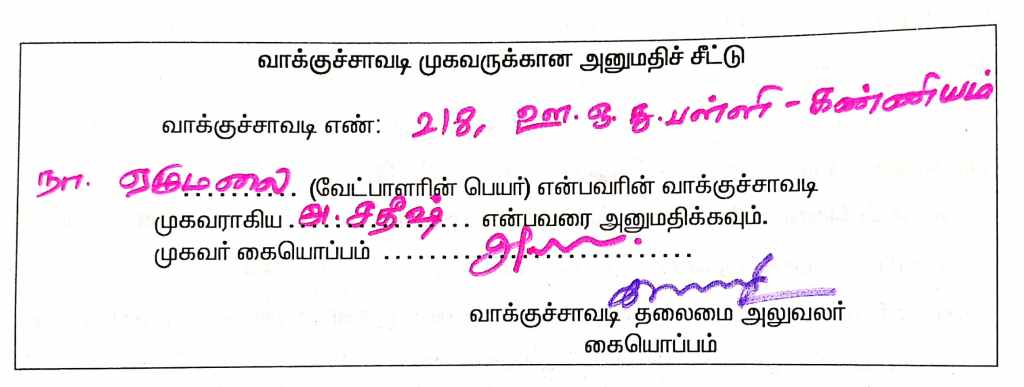 வாக்குச்சாவடி முகவருக்கான அனுமதிச் சீட்டு
வாக்குச்சாவடி எண்: 218, ஊ.ஒ.து.பள்ளி - கண்ணியம்
நா. ஏழுமலை (வேட்பாளரின் பெயர்) என்பவரின் வாக்குச்சாவடி
முகவராகிய அ. சதீஷ் என்பவரை அனுமதிக்கவும்.
முகவர் கையொப்பம் ..........................
வாக்குச்சாவடி தலைமை அலுவலர்
கையொப்பம்